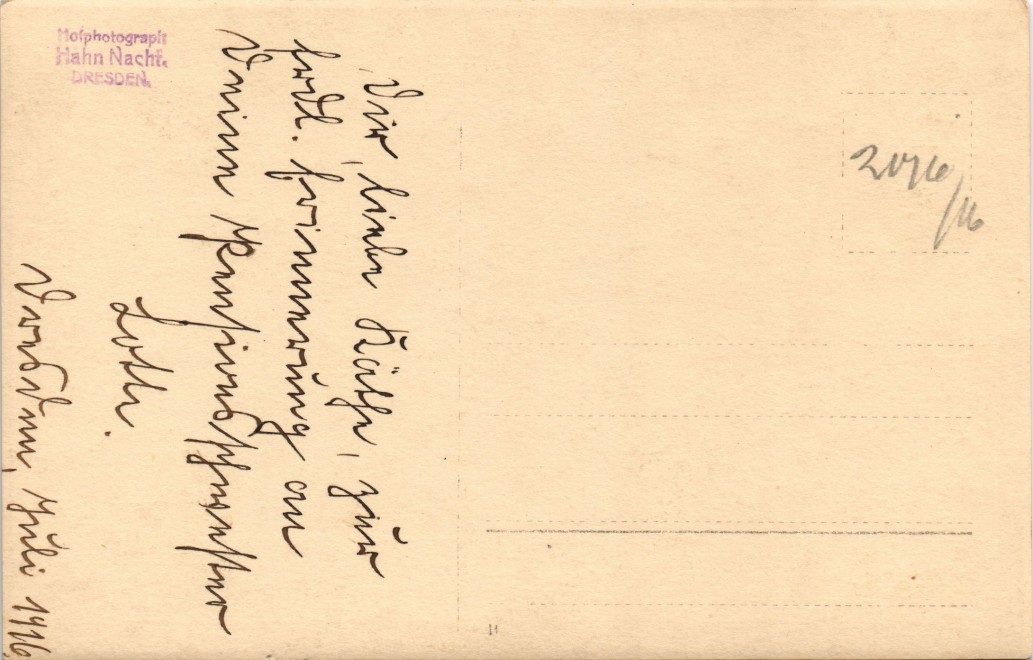 Hofphotograph
Hahn Nachf.
DRESDEN.
Dir, liebe Käthe, zur
frdl. Erinnerung an
Deine Pensionsschwester
Lotte.
Dresden, Juli 1916
11